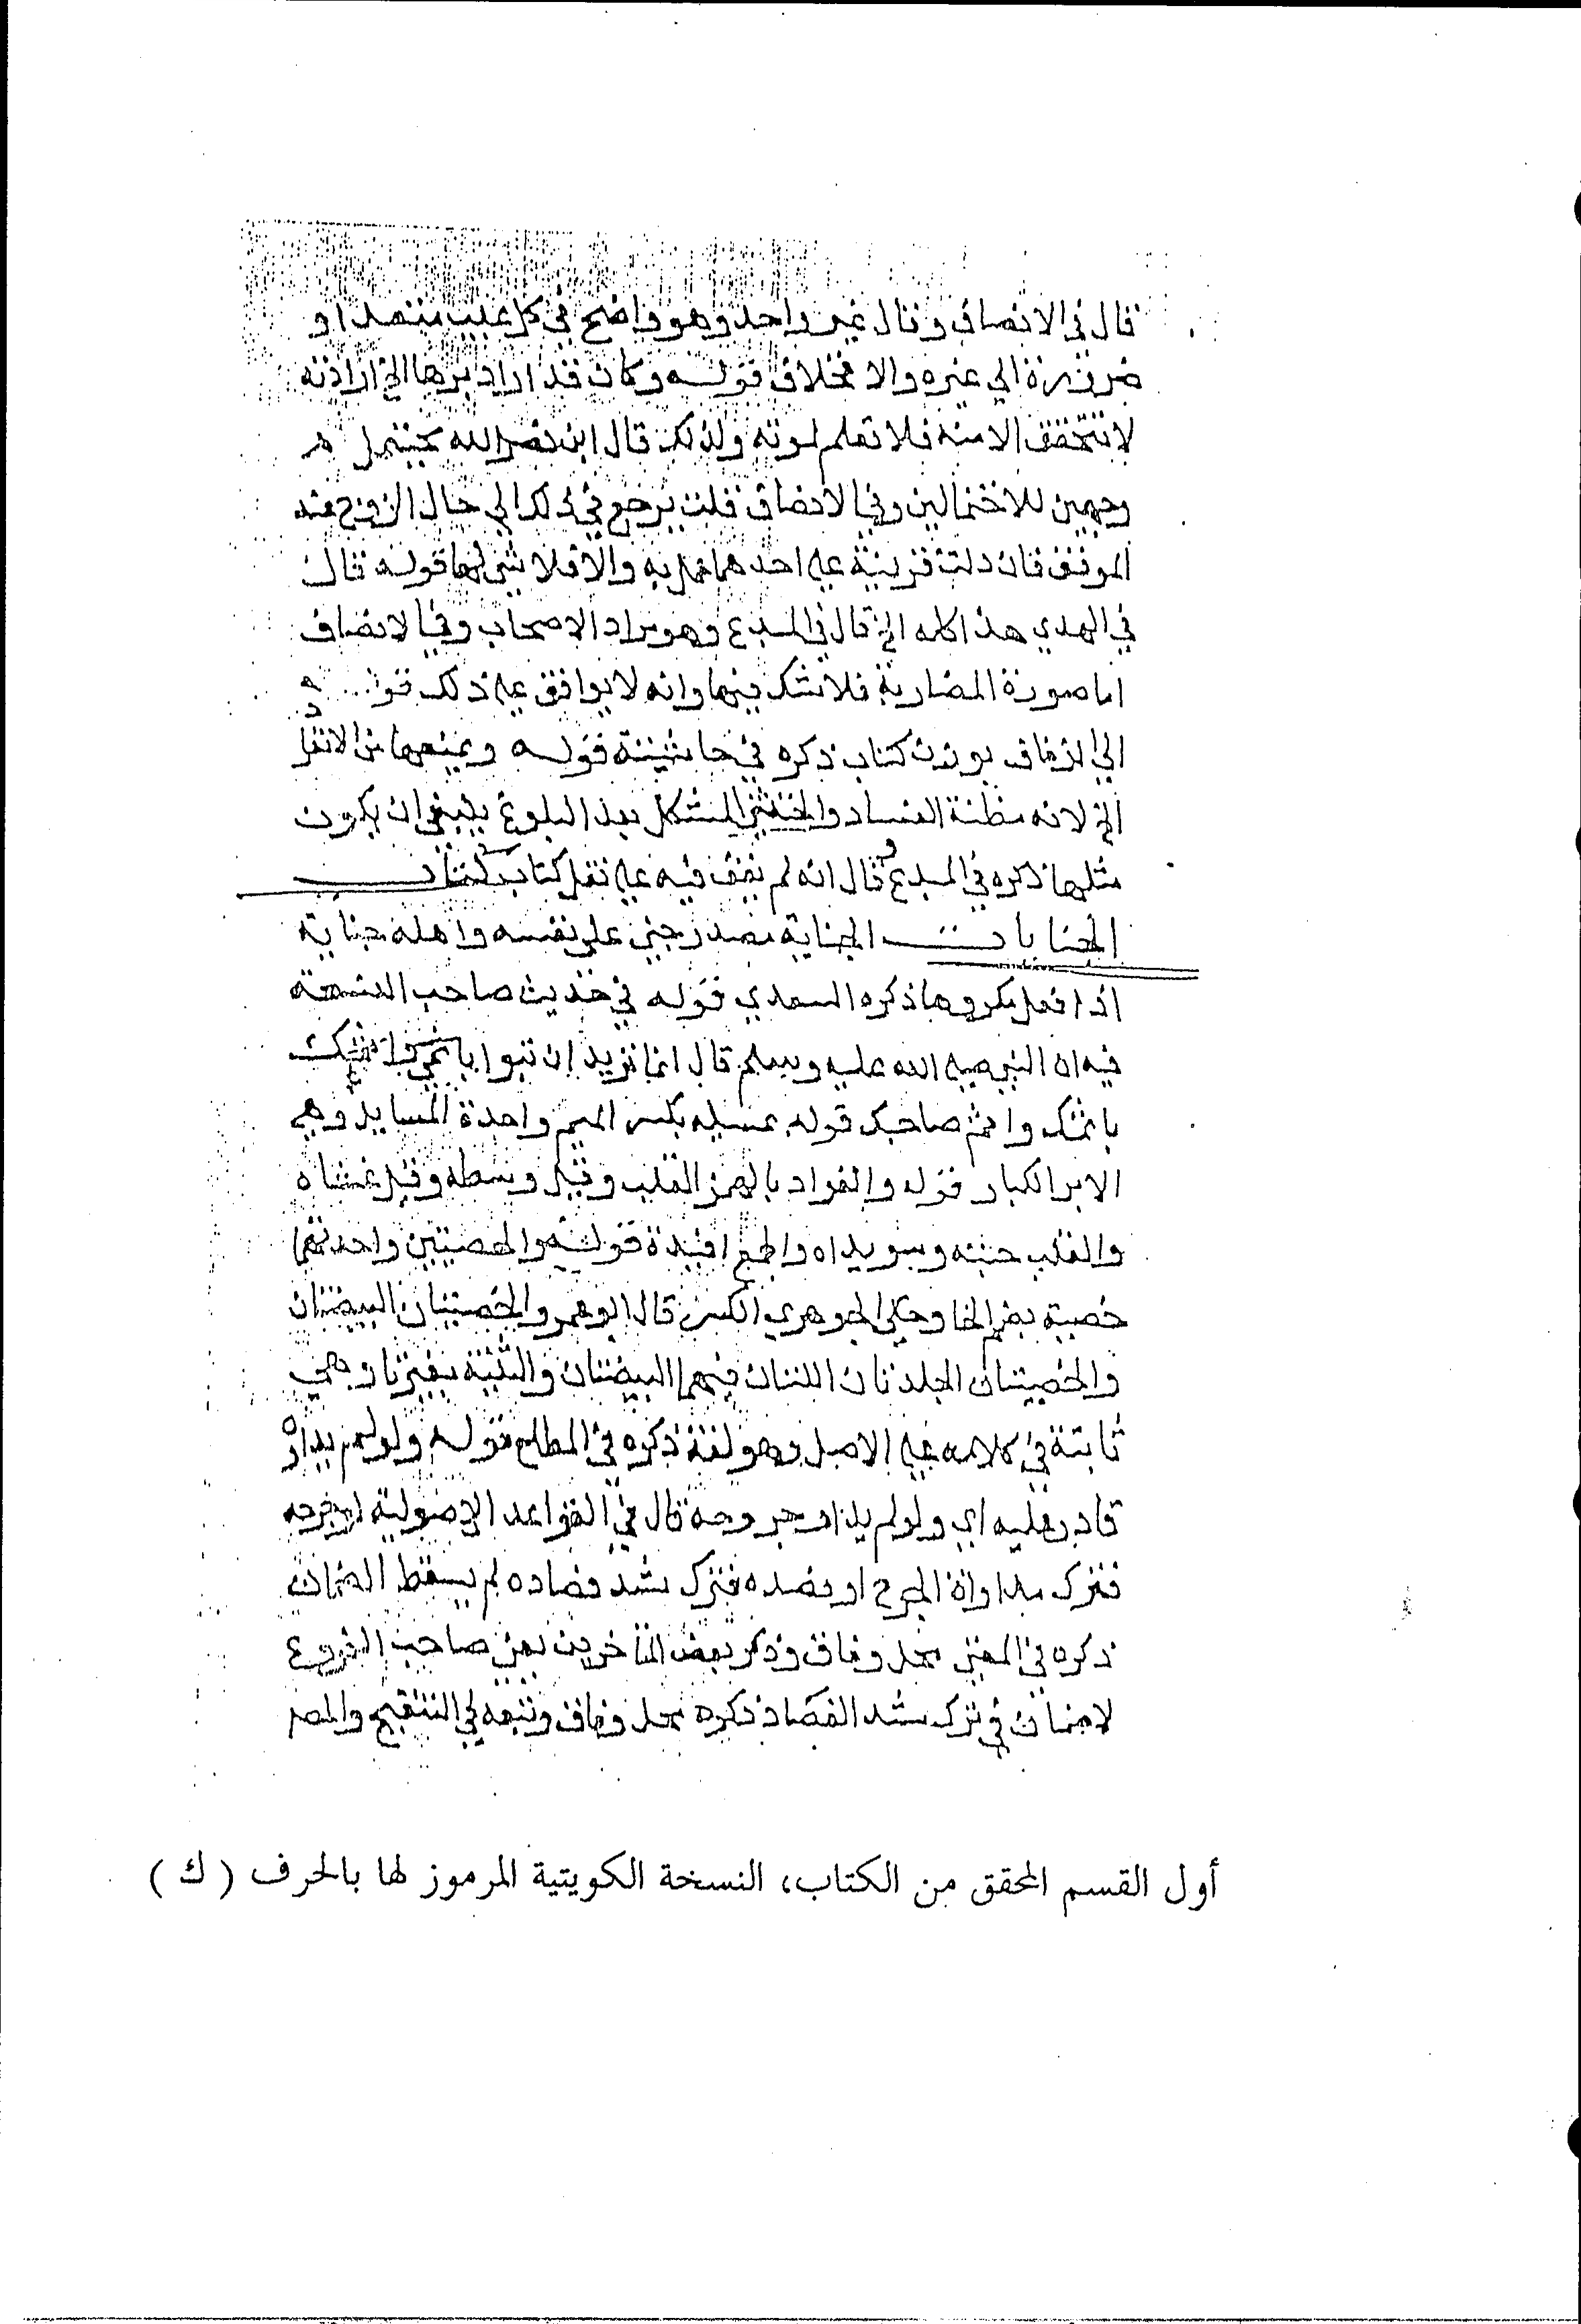 قال في الانصاف وقال غير واحد وهو واضح في كل عيب متعد او
ضررة الى غيره والا فخلاف قوله وكان قد اراد برها الخ ارادته
لا تتحقق الا منه فلا تعلم لموته ولذلك قال ابن نصر الله يحتمل
وجهين للاحتمالين وفي الانصاف قلت يرجع في ذلك الى حال الزوج عند
الموقف فان دلت قرينة على احدهما عمل به والا فلا شي لها قوله قال
في الهدي هذا كله الخ قال في المبدع وهو مراد الاصحاب وفي الانصاف
اما صورة المضاربة فلا شك فيها وانه لا يوافق على ذلك
الى الزفاف بوزن كتاب ذكره في حاشيته قوله ويمنعها من الانفراد
الخ لانه مظنة الفساد والخنثى المشكل بعد البلوغ ينبغي ان يكون
مثلها ذكره في المبدع وقال انه لم يقف فيه على نقل كتاب
الجنايات الجناية مصدر جنى على نفسه واهله جناية
اذا فعل مكروها ذكره السعدي قوله في حديث صاحب النسعة
فيه ان النبي صلى الله عليه وسلم قال اما تريد ان تبوا
باثمك واثم صاحبك قوله بمسلة بكسر الميم واحدة المسايل وهي
الابر الكبار قوله والفواد بالهمز القلب وقيل وسطه وقيل غشاه
والقلب حبته وسويداه والجمع افيدة قوله والخصيتين واحدتهما
خصية بضم الخا وحكى الجوهري الكسر قال ابو عمرو الخصيتان البيضتان
والخصيتان الجلدتان اللتان فيهما البيضتان والتثنية بغير تا وهي
ثابتة في كلامه على الاصل وهو لغة ذكره في المطلع قوله ولو لم يداو
قادر عليه اي ولو لم يداو جروحه قال في القواعد الاصولية لو جرحه
فترك مداواة الجرح او فصده فترك شد فصاده لم يسقط الضمان
ذكره في المغني محل وفاق وذكر بعض المتاخرين يعني صاحب الفروع
لا ضمان في ترك شد الفصاد ذكره محل وفاق وتبعه في التنقيح والمصر
أول القسم المحقق من الكتاب، النسخة الكويتية المرموز لها بالحرف ( ك )